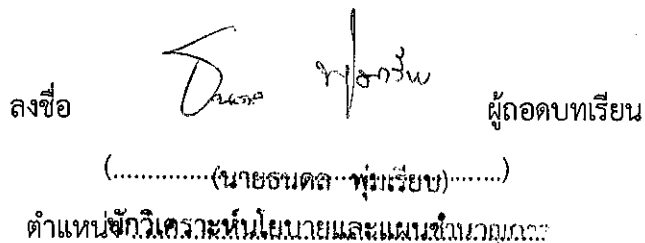 ลงชื่อ ธนดล พุ่มเรียบ ผู้ถอดบทเรียน
(..............(นายธนดล พุ่มเรียบ)........)
ตำแหน่งนักวิเคราะห์นโยบายและแผนชำนาญการ